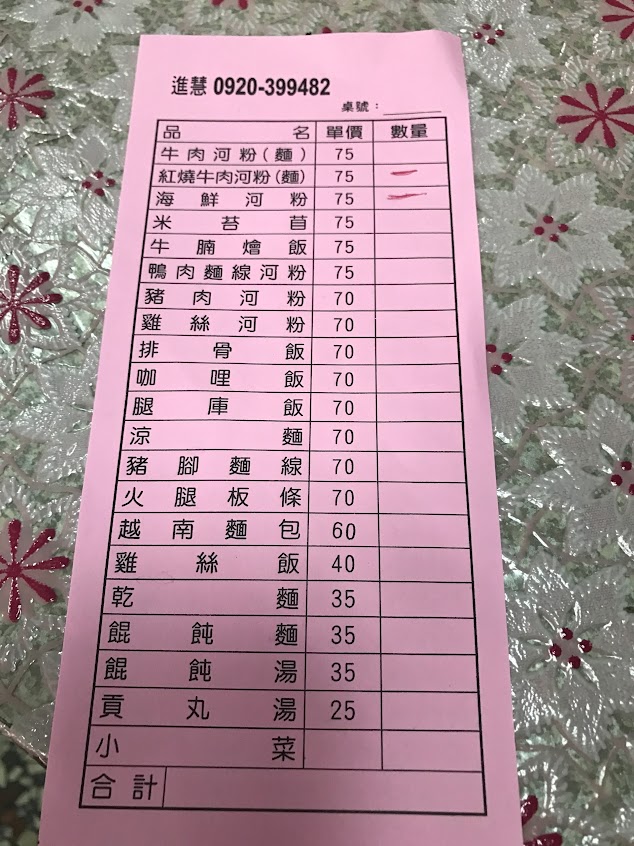 進慧 0920-399482
桌號：
品名 單價 數量
牛肉河粉(麵) 75
紅燒牛肉河粉(麵) 75 一
海鮮河粉 75 一
米苔苜 75
牛腩燴飯 75
鴨肉麵線河粉 75
豬肉河粉 70
雞絲河粉 70
排骨飯 70
咖哩飯 70
腿庫飯 70
涼麵 70
豬腳麵線 70
火腿板條 70
越南麵包 60
雞絲飯 40
乾麵 35
餛飩麵 35
餛飩湯 35
貢丸湯 25
小菜
合計